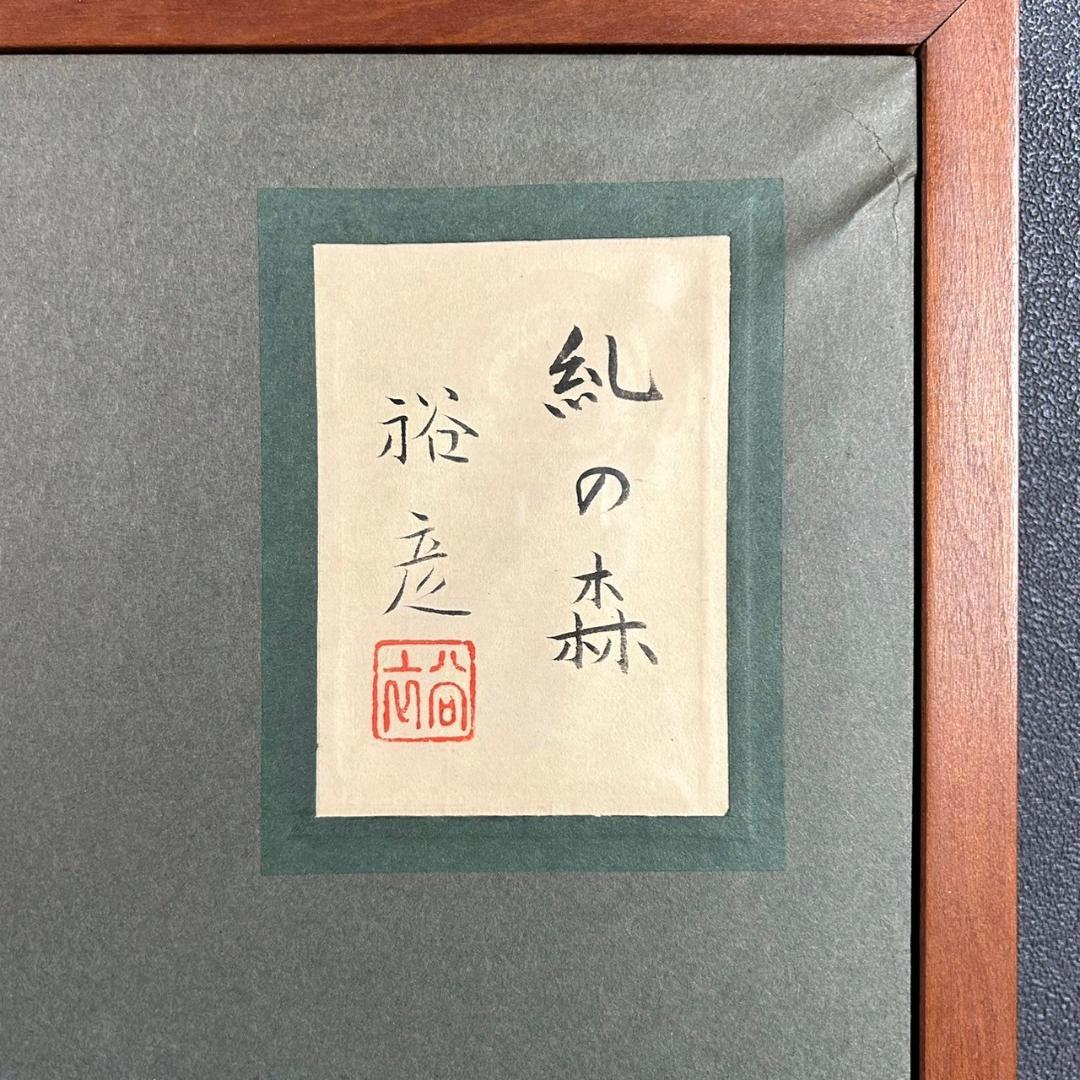 糺の森
裕彦